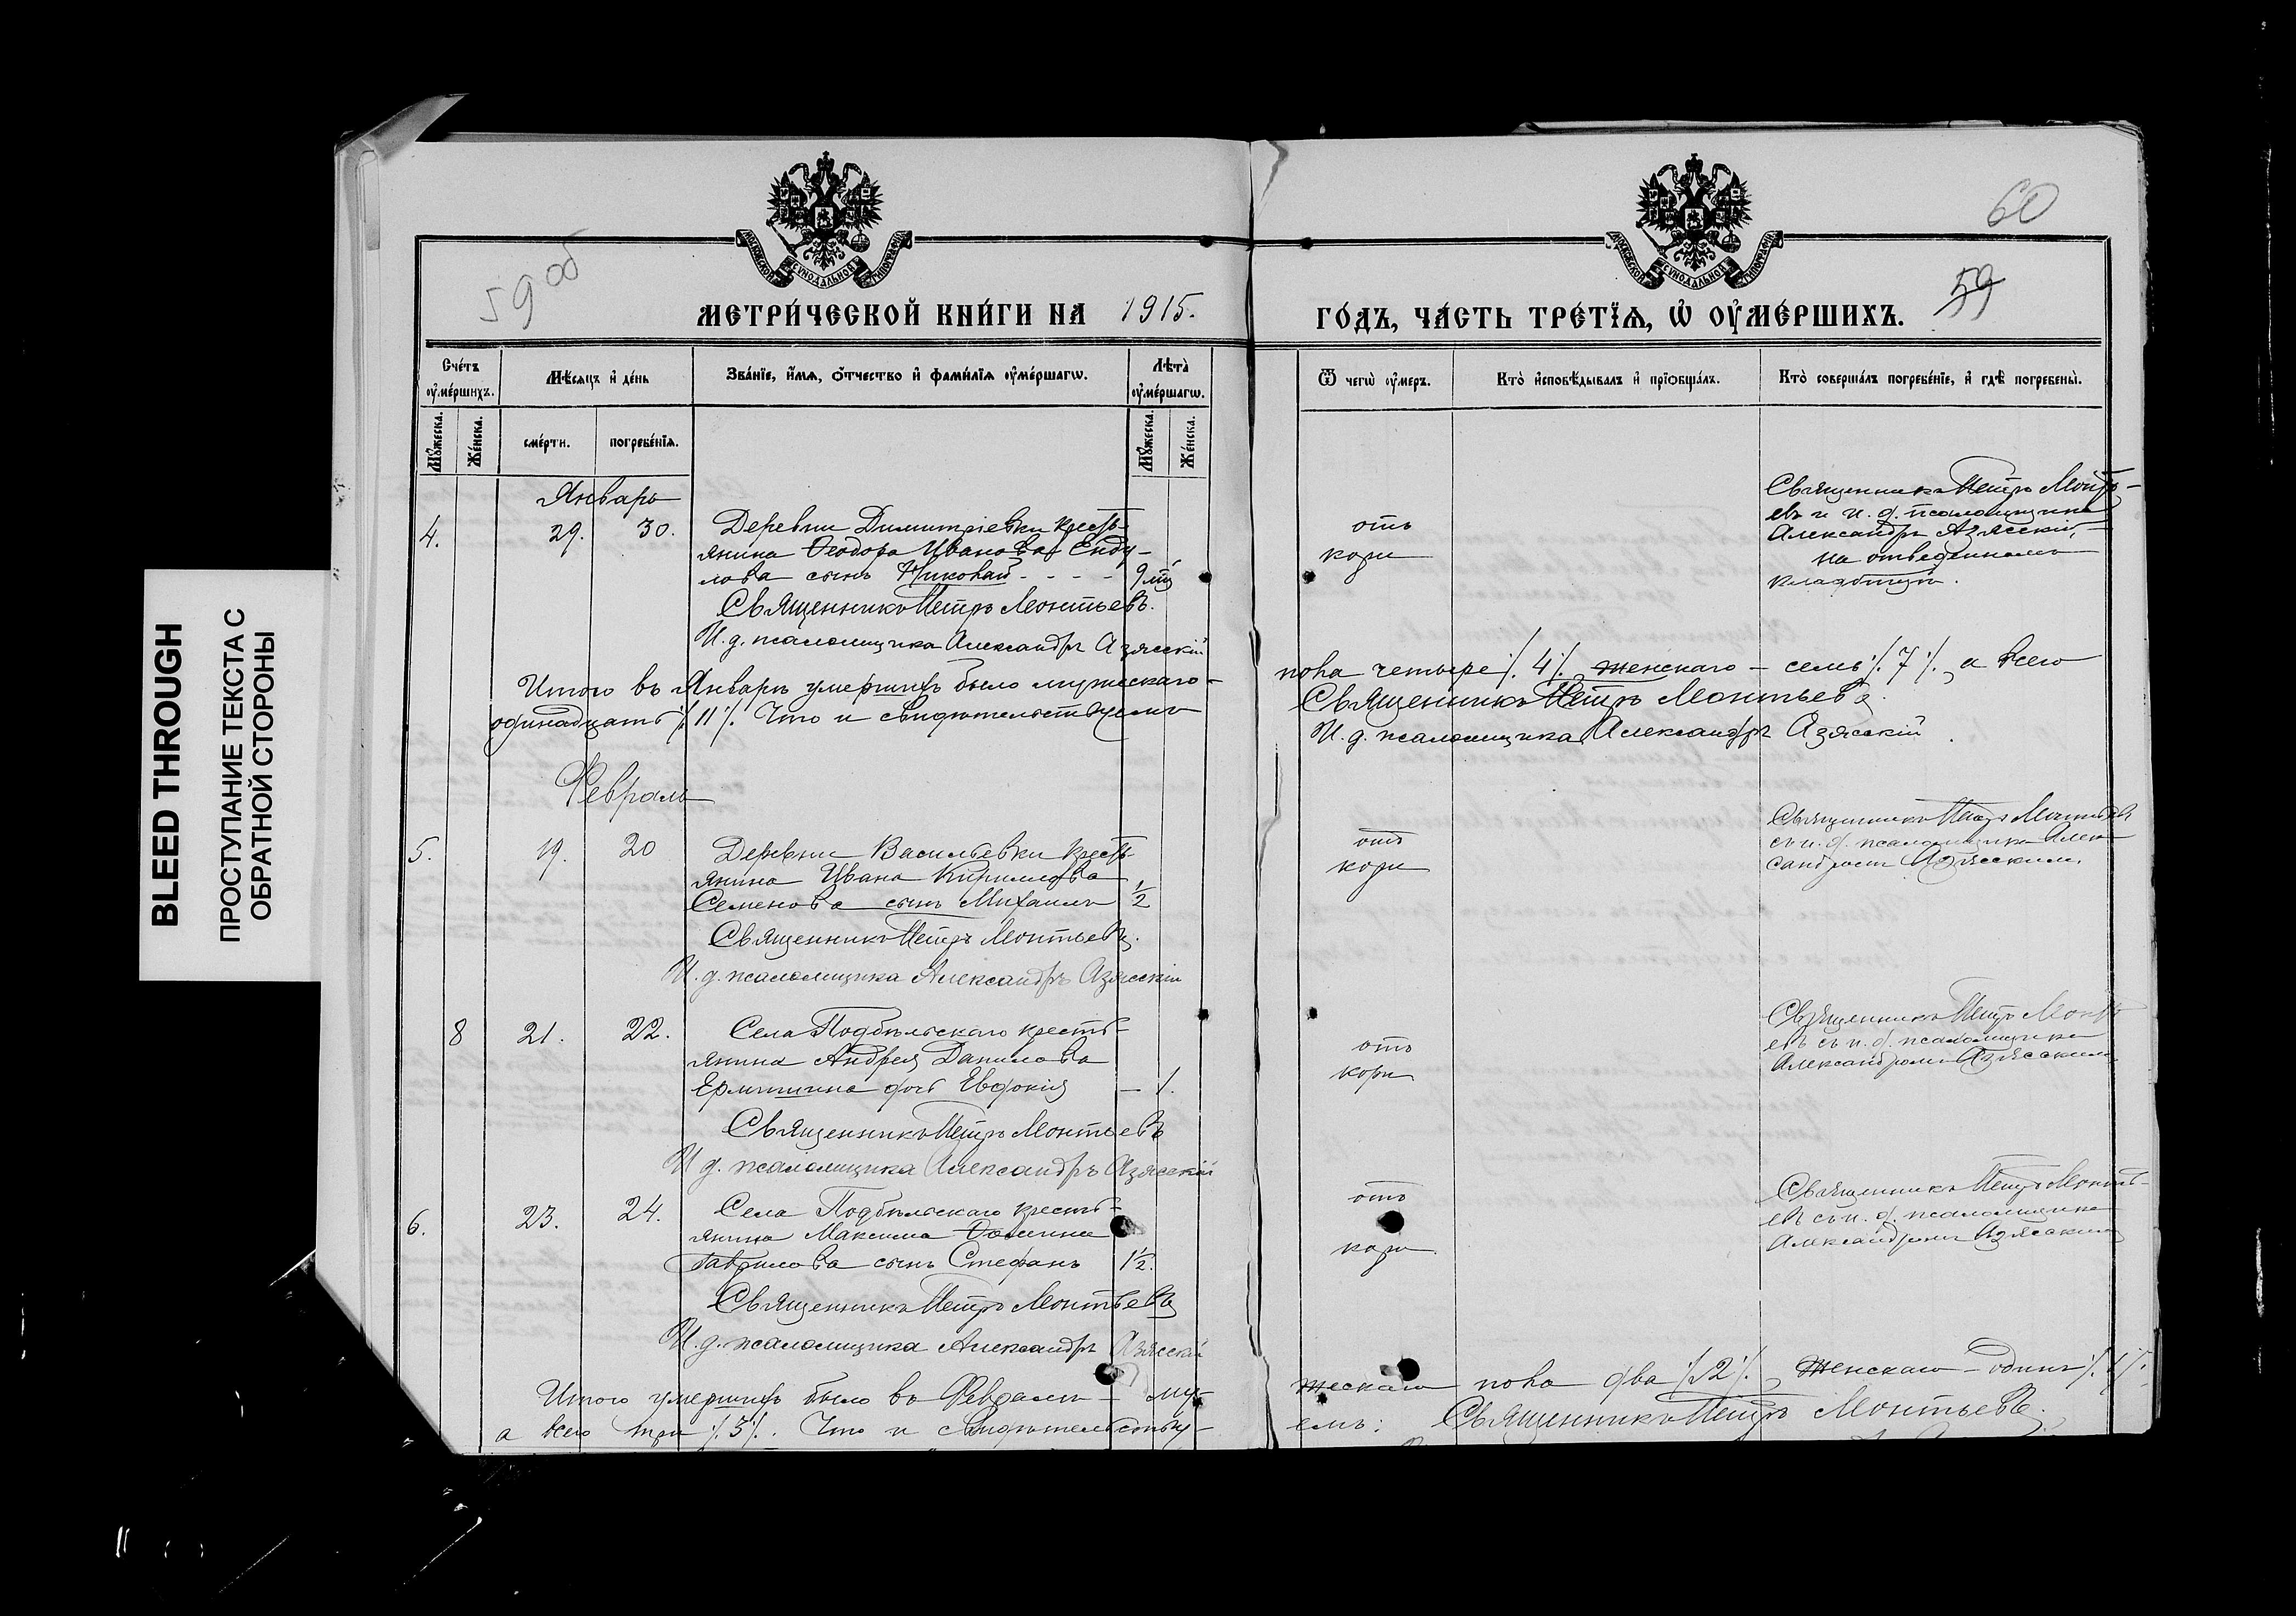 BLEED THROUGH
ПРОСТУПАНИЕ ТЕКСТА С
ОБРАТНОЙ СТОРОНЫ
59 об
60
59
МОСКОВСКОЙ СѴНОДАЛЬНОЙ ТИПОГРАФІИ
МОСКОВСКОЙ СѴНОДАЛЬНОЙ ТИПОГРАФІИ
МЕТРИ́ЧЕСКОЙ КНИ́ГИ НА 1915.
ГО́ДЪ, ЧА́СТЬ ТРЕ́ТЇѦ, Ѡ҆ ОУ҆МЕ́РШИХЪ.
Сче́тъ оу҆ме́ршихъ.
Мѣ́сяцъ и҆ де́нь
Зва́нїе, и҆́мѧ, ѻ҆́тчество и҆ фами́лїѧ оу҆ме́ршагѡ.
Лѣ́та оу҆ме́ршагѡ.
Ѿ чегѡ̀ оу҆́меръ.
Кто̀ и҆сповѣ́дывалъ и҆ прїѡбща́лъ.
Кто̀ соверша́лъ погребе́нїе, и҆ гдѣ̀ погребены̀.
Мꙋ́жеска.
Же́нска.
сме́рти.
погребе́нїѧ.
Мꙋ́жеска.
Же́нска.
Январь
4. 29. 30. Деревни Димитріевки кресть-
янина Ѳеодора Иванова Енду-
лова сынъ Николай - - - - 9 м
Священникъ Петръ Леонтьевъ.
И. д. псаломщика Александръ Азясскій
отъ
кори
Священникъ Петръ Леонть-
евъ и и. д. псаломщика
Александръ Азясскій,
на отведенномъ
кладбищѣ.
Итого въ Январѣ умершихъ было мужескаго-
пола четыре ·/. 4 ·/. женскаго - семь ·/. 7 ·/., а всего
одинадцать ·/. 11 ·/. Что и свидѣтельствуемъ
Священникъ Петръ Леонтьевъ.
И. д. псаломщика Александръ Азясскій
Февраль
5. 19. 20 Деревни Васильевки кресть-
янина Ивана Кириллова
Семенова сынъ Михаилъ 1/2
Священникъ Петръ Леонтьевъ.
И. д. псаломщика Александръ Азясскій
отъ
кори
Священникъ Петръ Леонтьевъ
съ и. д. псаломщика Алек-
сандромъ Азясскимъ.
8 21. 22. Села Подбѣльскаго кресть-
янина Андрея Данилова
дочь Евдокія — 1.
Священникъ Петръ Леонтьевъ
И. д. псаломщика Александръ Азясскій
отъ
кори
Священникъ Петръ Леонть-
евъ съ и. д. псаломщика
Александромъ Азясскимъ
6. 23. 24. Села Подбѣльскаго кресть-
янина Максима Ѳомина
Гаврилова сынъ Стефанъ 1 1/2.
Священникъ Петръ Леонтьевъ
И. д. псаломщика Александръ Азясскій
отъ
кори
Священникъ Петръ Леонть-
евъ съ и. д. псаломщика
Александромъ Азясскимъ
Итого умершихъ было въ Февралѣ — му-
жескаго пола два ·/. 2 ·/., женскаго - одинъ ·/. 1 ·/.
а всего три ·/. 3 ·/. Что и свидѣтельству-
емъ: Священникъ Петръ Леонтьевъ.